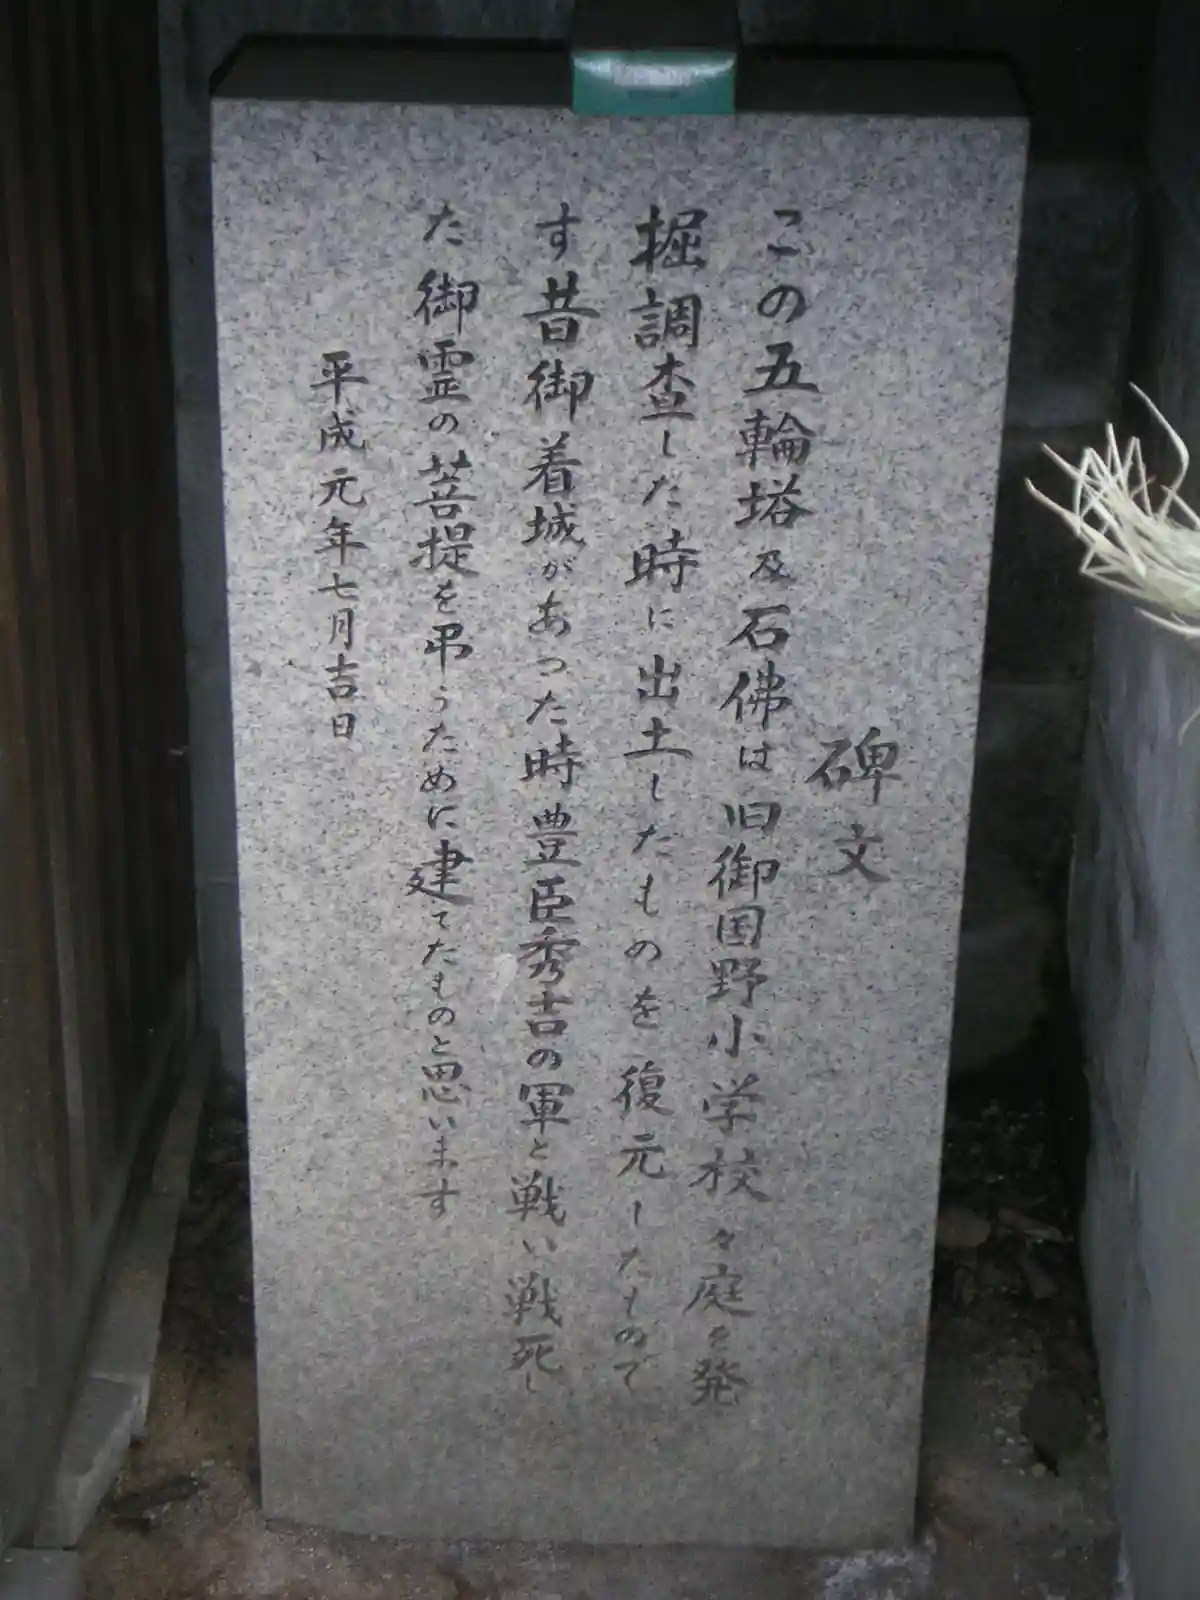 碑文
この五輪塔及石佛は旧御国野小学校々庭を発
掘調査した時に出土したものを復元したもので
す昔御着城があつた時豊臣秀吉の軍と戦い戦死し
た御霊の菩提を弔うために建てたものと思います
平成元年七月吉日